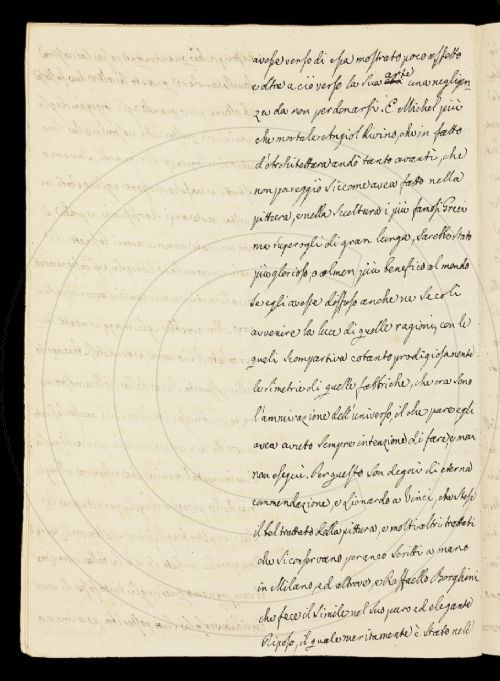 avesse verso di essa mostrato poco affetto
e oltre a ciò verso la sua arte una negligen-
za da non perdonarsi. E Michel più
che mortale Angiol Divino, che in fatto
d'Architettura andò tanto avanti, che
non pareggiò siccome avea fatto nella
pittura, e nella Scultura i più famosi Greci
ma superogli di gran lunga, sarebbe stato
più glorioso, o almen più benefico al mondo
se egli avesse diffuso anche ne Secoli
avvenire la luce di quelle ragioni, con le
quali scompartiva cotanto prodigiosamente
le simetrie di quelle fabbriche, che ora sono
l'ammirazione dell'universo, il che pare egli
avea avuto sempre intenzione di fare, e mai
non eseguì. Per questo son degni di eterna
commendazione, e Lionardo a Vinci, che stese
il bel trattato della pittura, e molti altri trattati
che si conservano per anco scritti a mano
in Milano, ed altrove, e Raffaello Borghini
che fece il simile nel suo puro ed elegante
Riposo, il quale meritamente è stato nell'